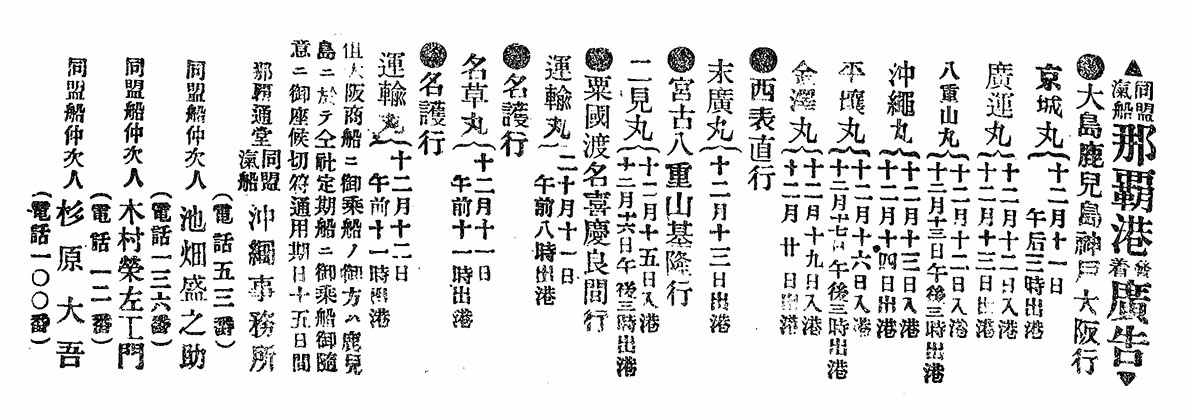 ▲同盟汽船那覇港発着廣告▼
●大島鹿兒島神戸大阪行
京城丸 十二月十一日午后三時出港
廣運丸 十二月十二日入港 十二月十三日出港
八重山丸 十二月十二日入港 十二月十三日午後三時出港
沖繩丸 十二月十三日入港 十二月十四日出港
平壤丸 十二月十六日入港 十二月十七日午後三時出港
金澤丸 十二月十九日入港 十二月廿日出港
●西表直行
末廣丸 十二月十三日出港
●宮古八重山基隆行
二見丸 十二月十五日入港 十二月十六日午後三時出港
●粟國渡名喜慶良間行
運輸丸 二十月十一日午前八時出港
●名護行
名草丸 十二月十一日午前十一時出港
●名護行
運輸丸 十二月十二日午前十一時出港
但大阪商船ニ御乘船ノ御方ハ鹿兒
島ニ於テ仝社定期船ニ御乘船御隨
意ニ御座候切符通用期日十五日間
那覇通堂 同盟汽船 沖繩事務所
(電話五三番)
同盟船仲次人 池畑盛之助
(電話一三六番)
同盟船仲次人 木村榮左工門
(電話一二番)
同盟船仲次人 杉原大吾
(電話一〇〇番)